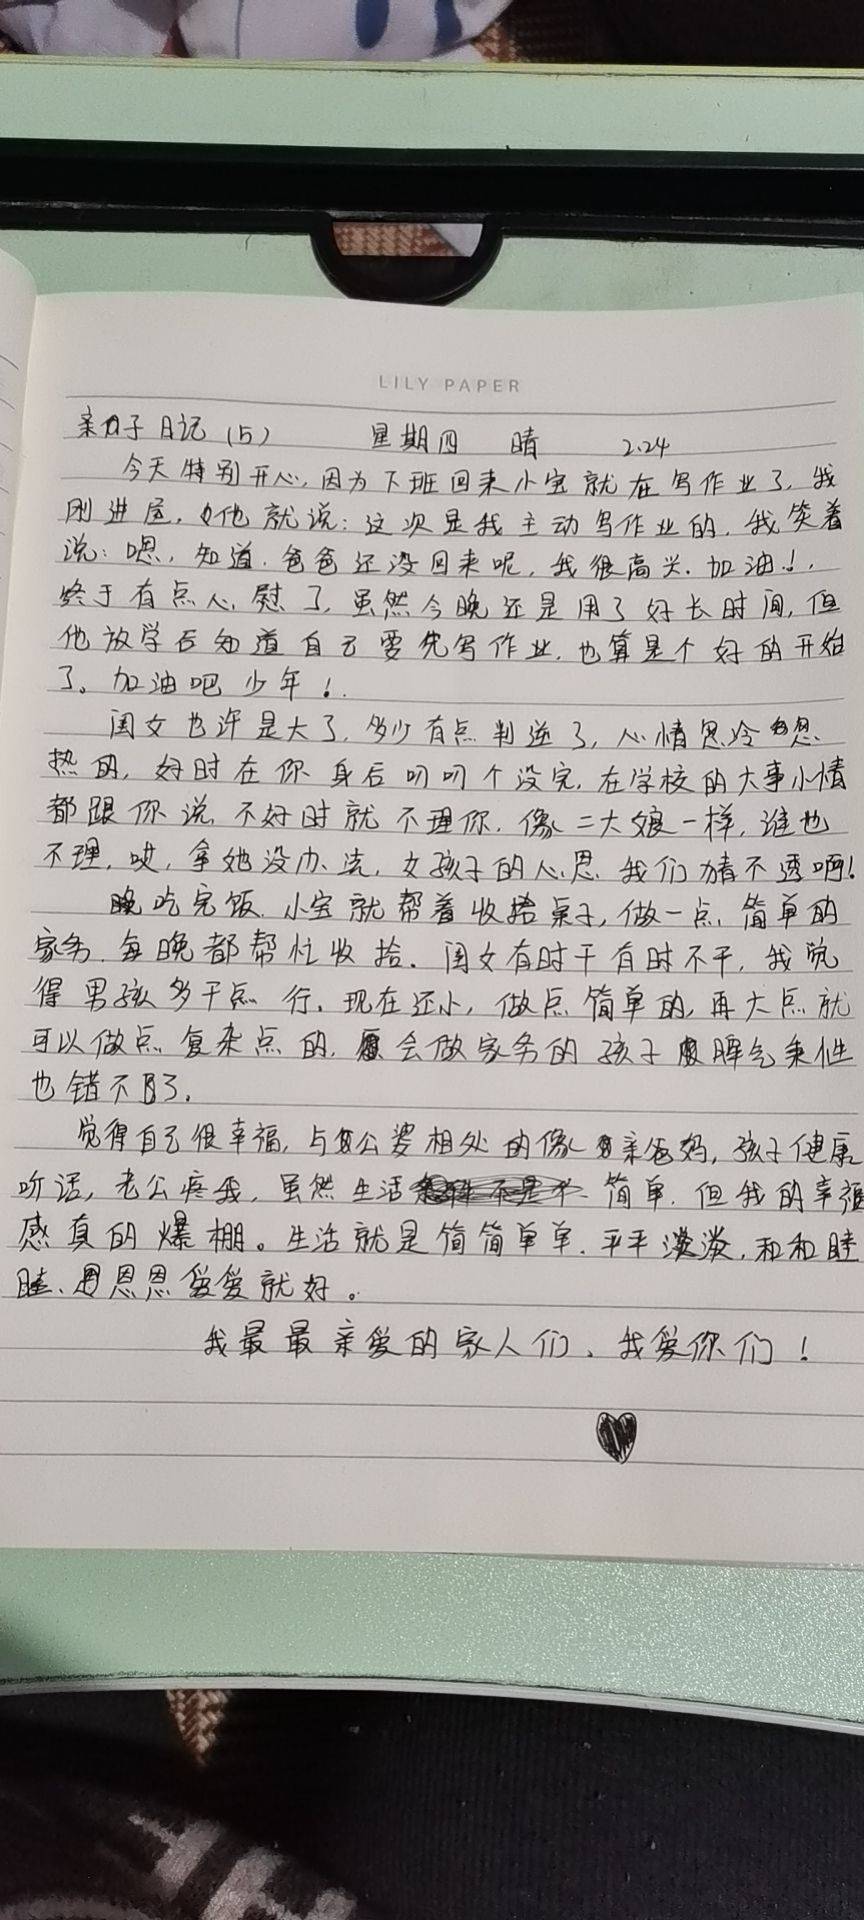 LILY PAPER
亲子日记（5） 星期四 晴 2.24
今天特别开心，因为下班回来小宝就在写作业了，我
刚进屋，他就说：这次是我主动写作业的，我笑着
说：嗯，知道，爸爸还没回来呢，我很高兴．加油！，
终于有点心慰了，虽然今晚还是用了好长时间，但
他放学后知道自己要先写作业，也算是个好的开始
了。加油吧少年！．
闺女也许是大了，多少有点判逆了，心情忽冷忽
热的，好时在你身后叨叨个没完，在学校的大事小情
都跟你说，不好时就不理你，像二大娘一样，谁也
不理，哎，拿她没办法，女孩子的心思我们猜不透啊！
晚吃完饭，小宝就帮着收拾桌子，做一点简单的
家务，每晚都帮忙收拾．闺女有时干有时不干，我觉
得男孩多干点行．现在还小，做点简单的，再大点就
可以做点复杂点的，会做家务的孩子脾气秉性
也错不了．
觉得自己很幸福，与公婆相处的像亲爸妈，孩子健康
听话，老公疼我，虽然生活简单，但我的幸福
感真的爆棚。生活就是简简单单，平平淡淡，和和睦
睦、恩恩爱爱就好。
我最最亲爱的家人们，我爱你们！